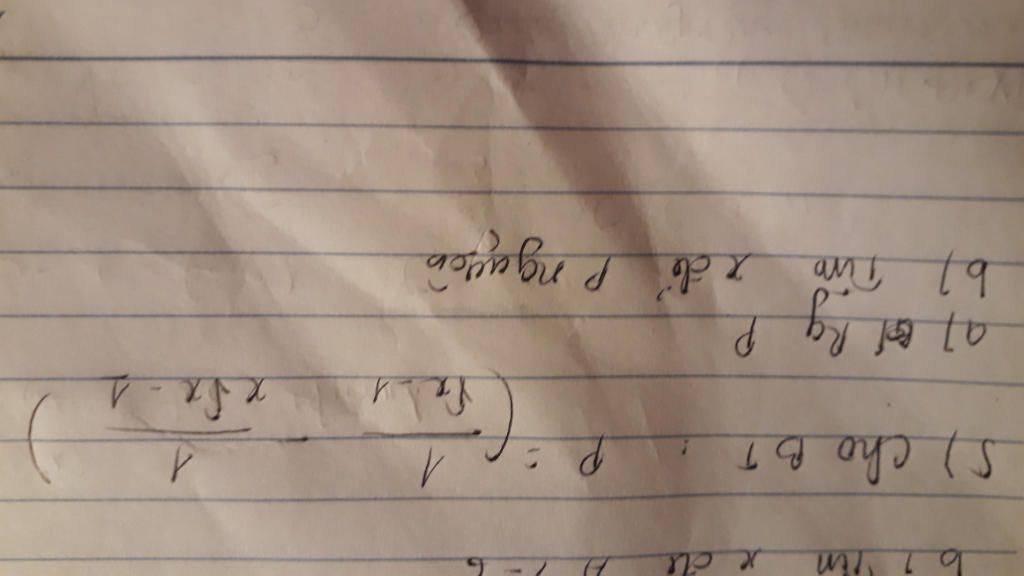 b) Tìm x để
5) Cho BT : P = ( 1/(√x - 1) - 1/(x√x - 1) )
a) Rg P
b) Tìm x để P nguyên